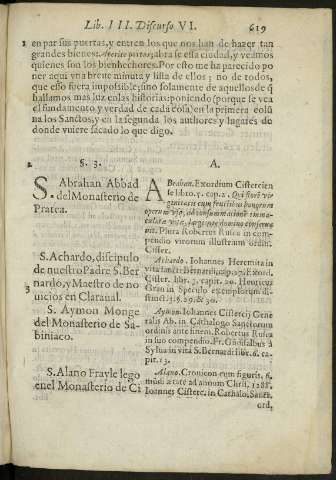 Lib. III. Discurso VI. 619
1 en par sus puertas, y entren los que nos han de hazer tan
grandes bienes: Aperite portas, abrase essa ciudad, y veamos
quienes son los bienhechores. Por esto me ha parecido po
ner aqui vna breue minuta y lista de ellos; no de todos,
que esso fuera impossible; sino solamente de aquellos de q̃
hallamos mas luz en las historias: poniendo (porque se vea
el fundamento y verdad de cada cosa) en la primera colũ
na los Sanctos, y en la segunda los authores y lugares de
donde viuere sacado lo que digo.
2 S. 3. A.
S. Abrahan Abbad
del Monasterio de
Pratea.
S. Achardo, discipulo
de nuestro Padre S. Ber
nardo, y Maestro de no
3 uicios en Claraual.
S. Aymon Monge
del Monasterio de Sa-
biniaco.
S. Alano Frayle lego
en el Monasterio de Ci
Abrahan. Exordium Cistercien
se libro. 5. cap. 2. Qui flore vir
ginitatis cum fructibus bonorum
operum vsq, ad consummationem imma-
culatæ vitæ,
nit. Plura Robertus Rusca in com-
pendio virorum illustrium ordin.
Cister.
Achardo. Iohannes Heremita in
vita sancti Bernardi, cap. 27. Exord.
Cister. libr. 3. capit. 20. Heuricus
Gran in Speculo exemplorum di-
stinct. 3. §. 29. & 30.
Aymon. Iohannes Cistercij Gene
ralis Ab. in Cathalogo Sanctorum
ordinis ante finem. Robertus Rusca
in suo compendio. Fr. Gundisalbus à
Sylua in vita S. Bernardi libr. 6. ca-
pit. 13.
Alano. Cronicon cum figuris, 6.
mũdi ætate ad annum Christ. 1288.
Ioannes Cisterc. in Cathalo. Sanct.
ord,